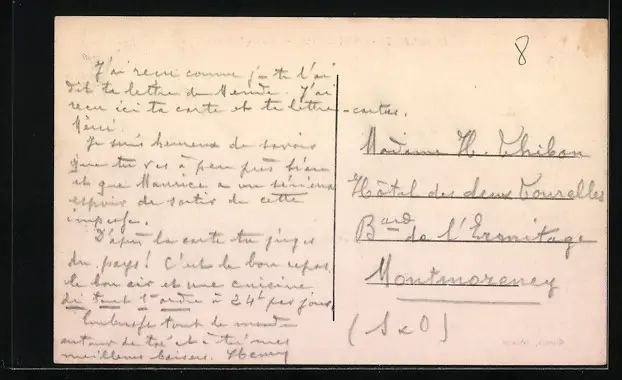 8
J'ai reçu comme je te l'ai
dit ta lettre de Mende. J'ai
reçu ici ta carte et ta lettre-cartes.
Merci.
Je suis heureux de savoir
que tu vas à peu près bien
et que Maurice a un sérieux
espoir de sortir de cette
impasse.
D'après la carte tu juges
du pays! C'est le bon repos
le bon air et une cuisine
de tout 1er ordre à 24f par jour.
Embrasse tout le monde
autour de toi et à toi mes
meilleurs baisers. Henry
Madame H. Thibon
Hôtel des deux Tourelles
Bard de l'Ermitage
Montmorency
(S & O)